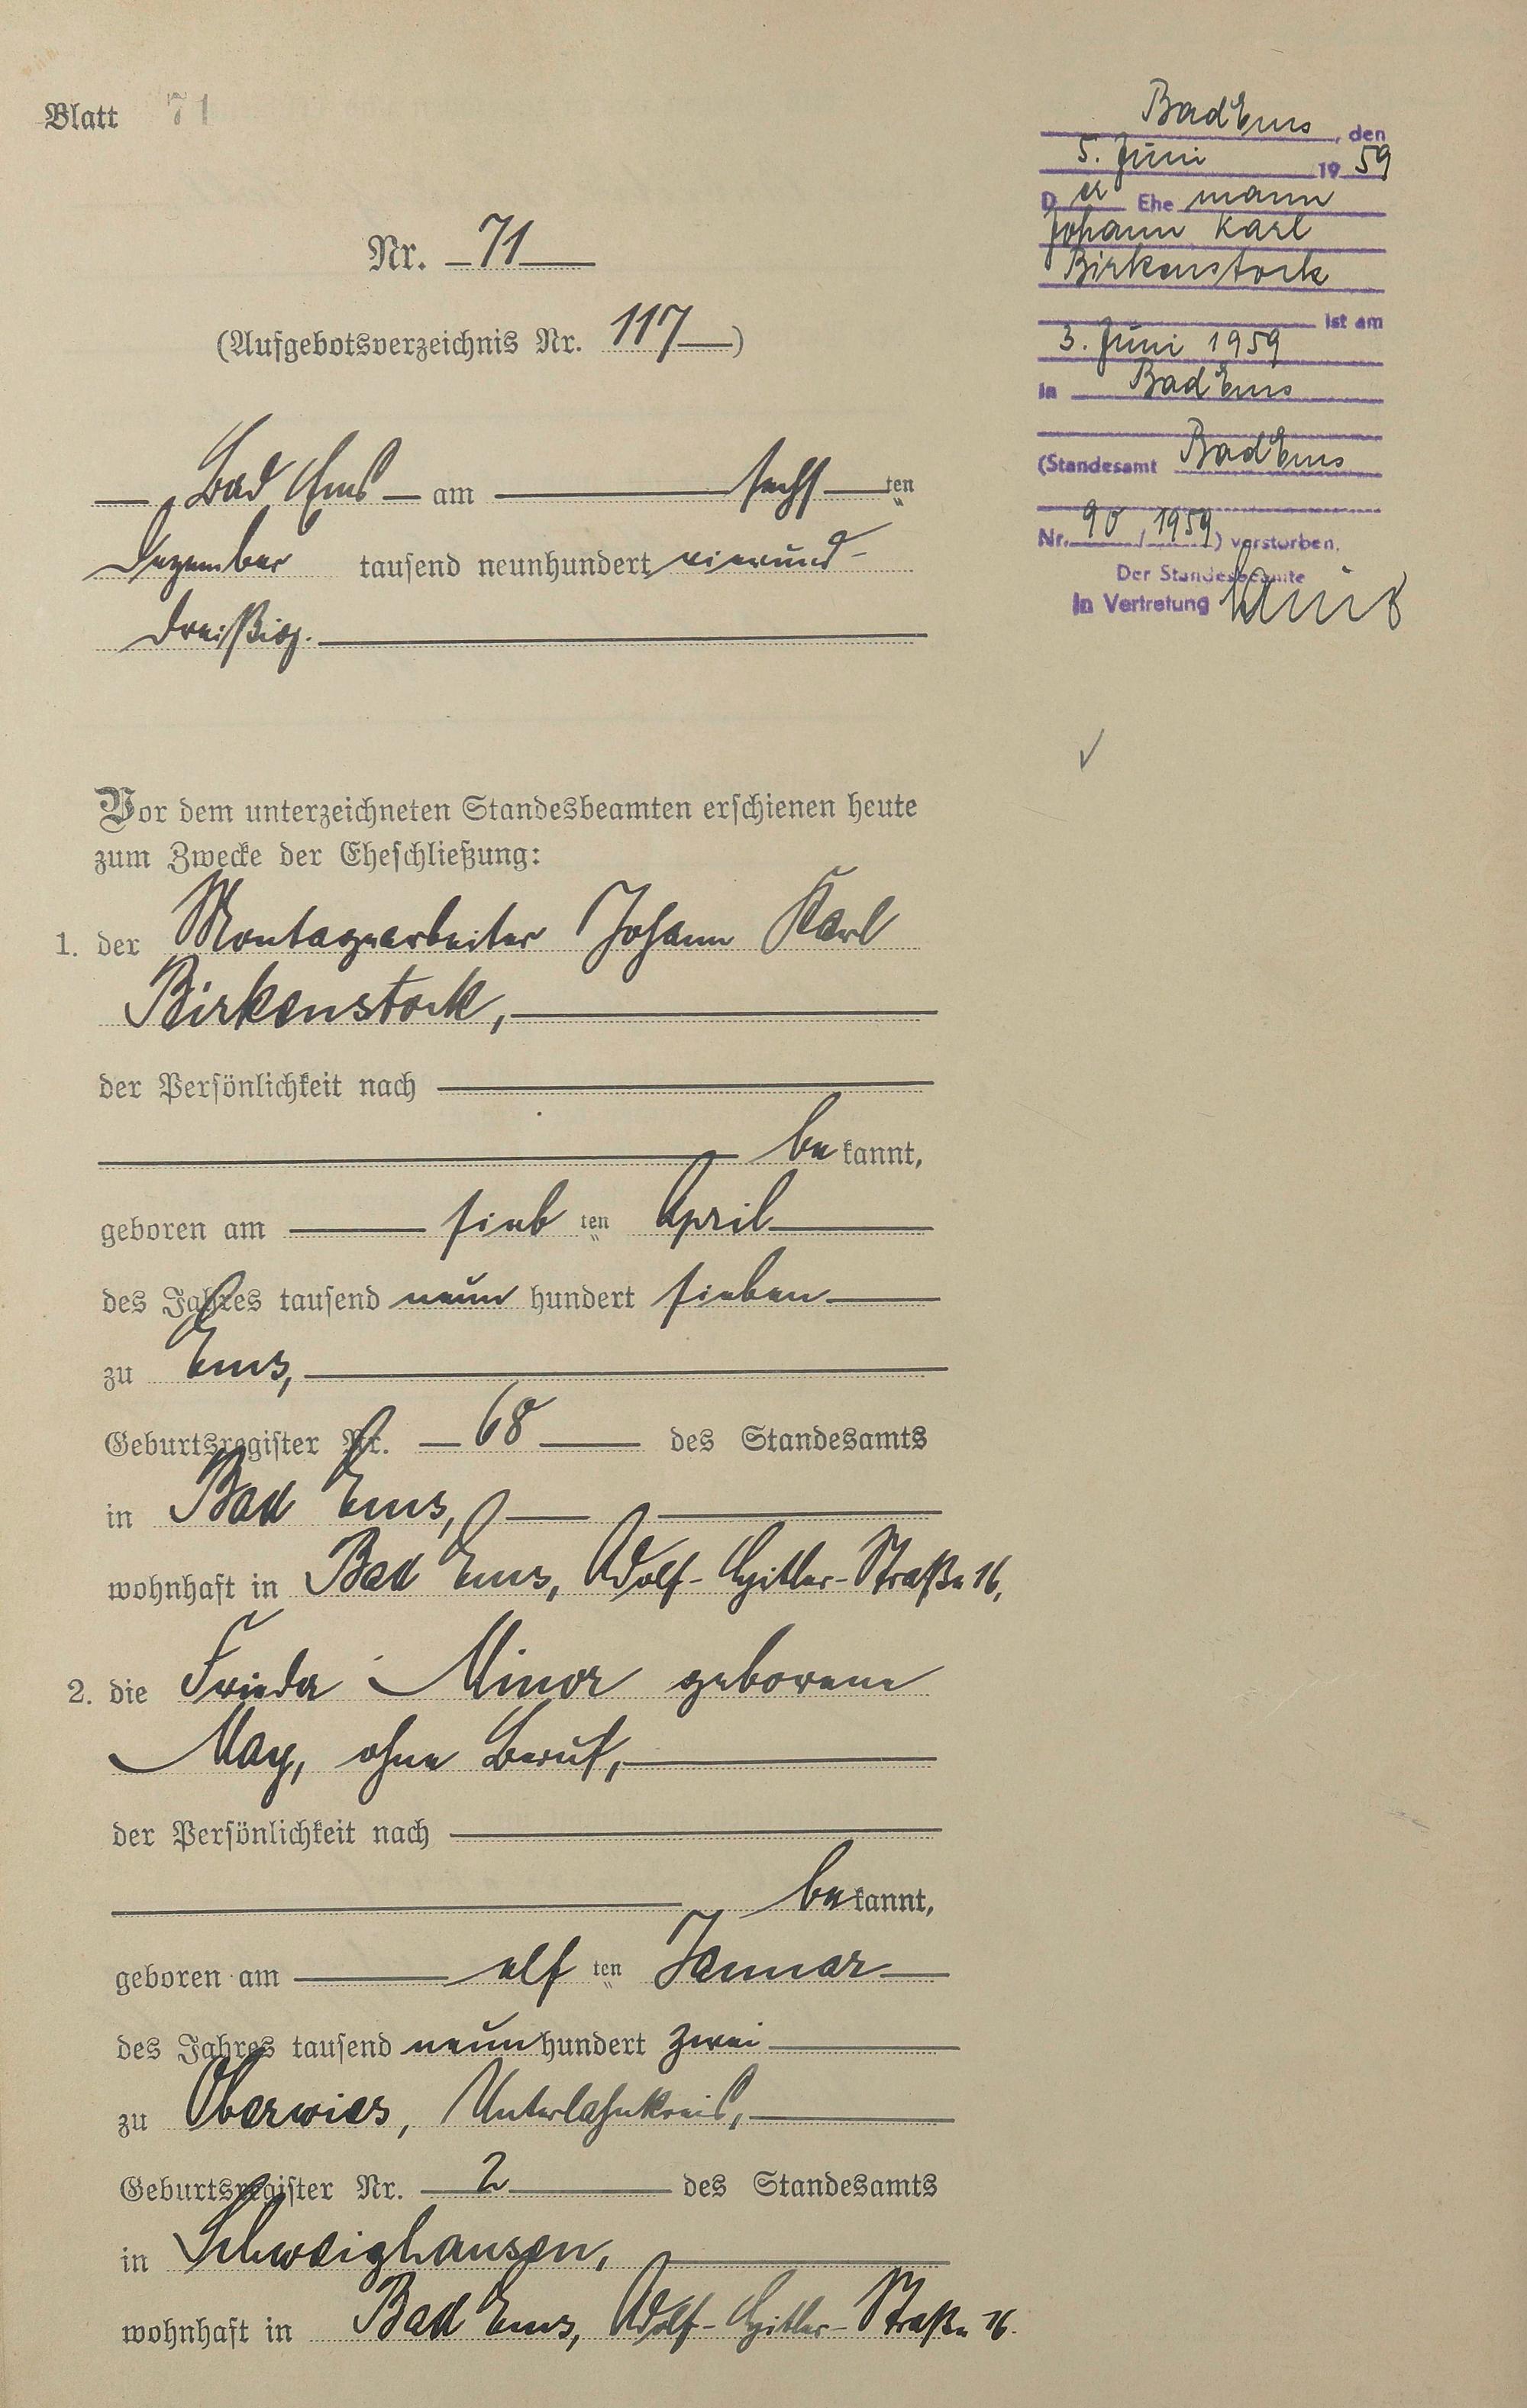 Blatt 71
Nr. 71
(Aufgebotsverzeichnis Nr. 117)
Bad Ems am sechsten
Dezember tausend neunhundert vierund-
dreißig.
Vor dem unterzeichneten Standesbeamten erschienen heute
zum Zwecke der Eheschließung:
1. der Montagearbeiter Johann Karl
Birkenstock,
der Persönlichkeit nach
bekannt,
geboren am siebten April
des Jahres tausend neunhundert sieben
zu Ems,
Geburtsregister Nr. 68 des Standesamts
in Bad Ems,
wohnhaft in Bad Ems, Adolf-Hitler-Straße 16,
2. die Frieda Minor geborene
May, ohne Beruf,
der Persönlichkeit nach
bekannt,
geboren am elften Januar
des Jahres tausend neunhundert zwei
zu Oberwies, Unterlahnkreis,
Geburtsregister Nr. 2 des Standesamts
in Schweighausen,
wohnhaft in Bad Ems, Adolf-Hitler-Straße 16.
Bad Ems, den
5. Juni 1959
Der Ehemann
Johann Karl
Birkenstock
ist am
3. Juni 1959
in Bad Ems
(Standesamt Bad Ems
Nr. 90/1959) verstorben.
Der Standesbeamte
In Vertretung